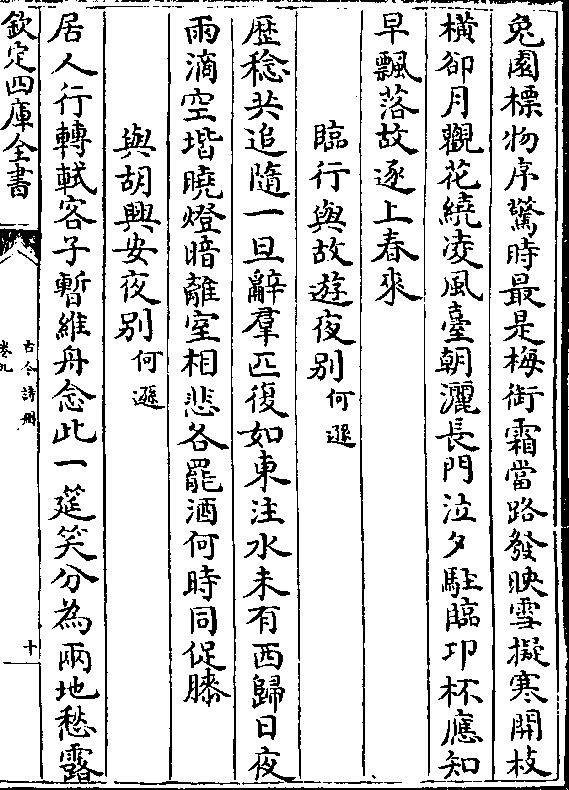 兔園標物序驚時最是梅銜霜當路發映雪擬寒開枝
橫卻月觀花繞凌風臺朝灑長門泣夕駐臨卭杯應知
早飄落故逐上春來
臨行與故遊夜别何遜
歴稔共追隨一旦辭羣匹復如東注水未有西歸日夜
雨滴空堦曉燈暗離室相悲各罷酒何時同促膝
與胡興安夜别何遜
居人行轉軾客子暫維舟念此一筵笑分為兩地愁露
欽定四庫全書
古今詩刪
卷九
十